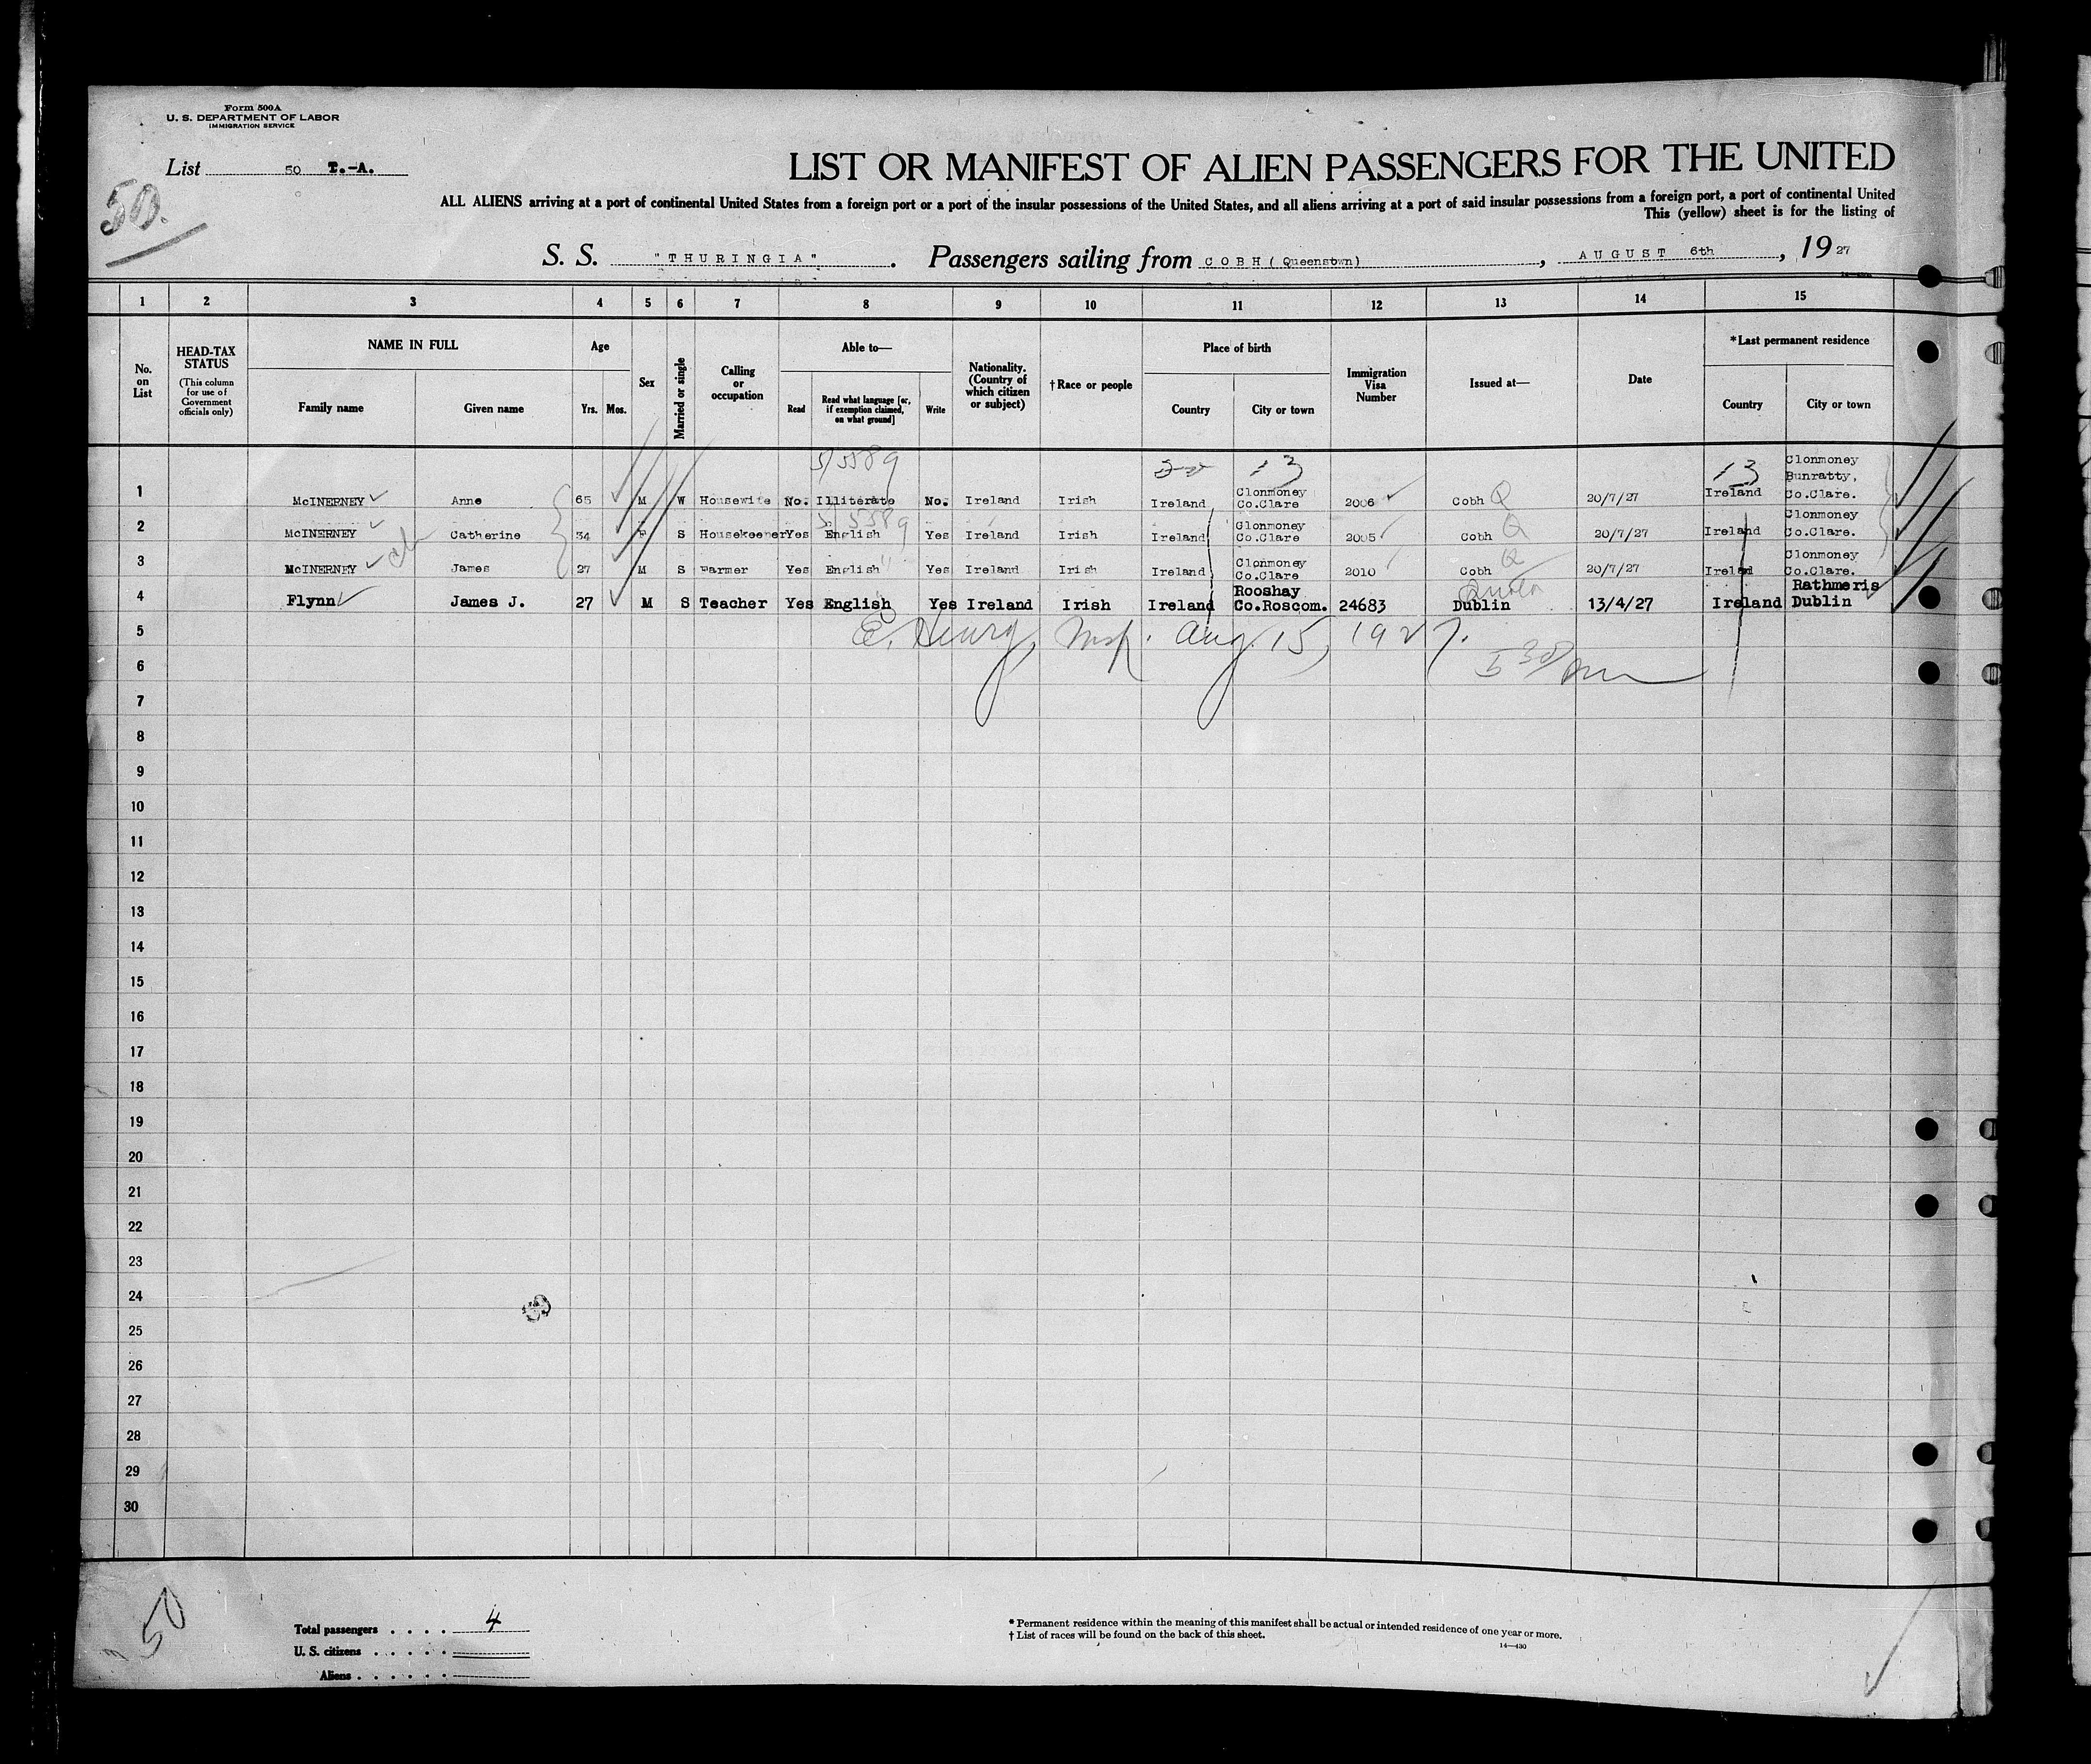 Form 500A
U. S. DEPARTMENT OF LABOR
IMMIGRATION SERVICE
List 50 T.-A.
50.
LIST OR MANIFEST OF ALIEN PASSENGERS FOR THE UNITED
ALL ALIENS arriving at a port of continental United States from a foreign port or a port of the insular possessions of the United States, and all aliens arriving at a port of said insular possessions from a foreign port, a port of continental United
This (yellow) sheet is for the listing of
S. S. "THURINGIA". Passengers sailing from COBH (Queenstown), AUGUST 6th, 1927
1 2 3 4 5 6 7 8 9 10 11 12 13 14 15
No. on List
HEAD-TAX STATUS
(This column for use of Government officials only)
NAME IN FULL
Family name Given name
Age
Yrs. Mos.
Sex
Married or single
Calling or occupation
Able to—
Read
Read what language [or, if exemption claimed, on what ground]
Write
Nationality. (Country of which citizen or subject)
†Race or people
Place of birth
Country City or town
Immigration Visa Number
Issued at—
Date
*Last permanent residence
Country City or town
5/5589
13
13
1 McINERNEY Anne 65 M W Housewife No. Illiterate No. Ireland Irish Ireland Clonmoney Co.Clare 2006 Cobh Q 20/7/27 Ireland Clonmoney Bunratty, Co.Clare.
5 5589
2 McINERNEY Catherine 34 F S Housekeeper Yes English Yes Ireland Irish Ireland Clonmoney Co.Clare 2005 Cobh Q 20/7/27 Ireland Clonmoney Co.Clare.
3 McINERNEY James 27 M S Farmer Yes English " Yes Ireland Irish Ireland Clonmoney Co.Clare 2010 Cobh Q 20/7/27 Ireland Clonmoney Co.Clare.
4 Flynn James J. 27 M S Teacher Yes English Yes Ireland Irish Ireland Rooshay Co.Roscom. 24683 Dublin 13/4/27 Ireland Rathmeris Dublin
5 E. Henry, Insp. Aug. 15, 1927.
6 5 30 pm
7
8
9
10
11
12
13
14
15
16
17
18
19
20
21
22
23
24
25
26
27
28
29
30
50
Total passengers . . . . 4
U. S. citizens . . . . .
Aliens . . . . . .
* Permanent residence within the meaning of this manifest shall be actual or intended residence of one year or more.
† List of races will be found on the back of this sheet.
14—430